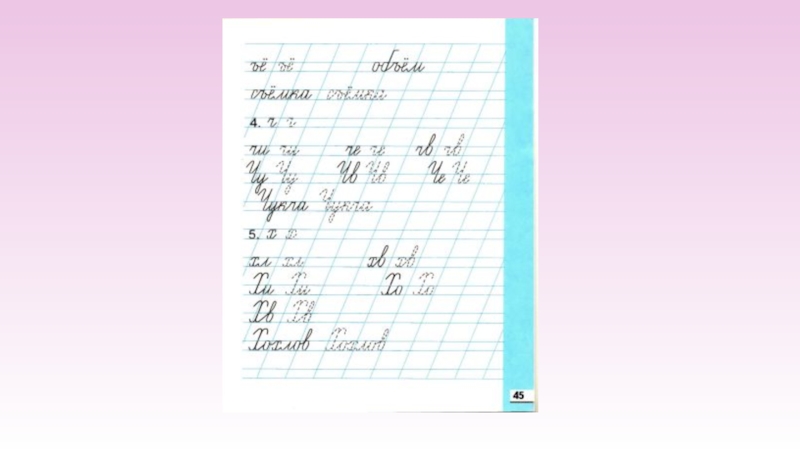 ъё ъё объём
съёмка съёмка
4. ч ч
чи чи че че чв чв
Чу Чу Чв Чв Че Че
Чукча Чукча
5. х х
хл хл хв хв
Хи Хи Хо Хо
Хв Хв
Хохлов Хохлов
45